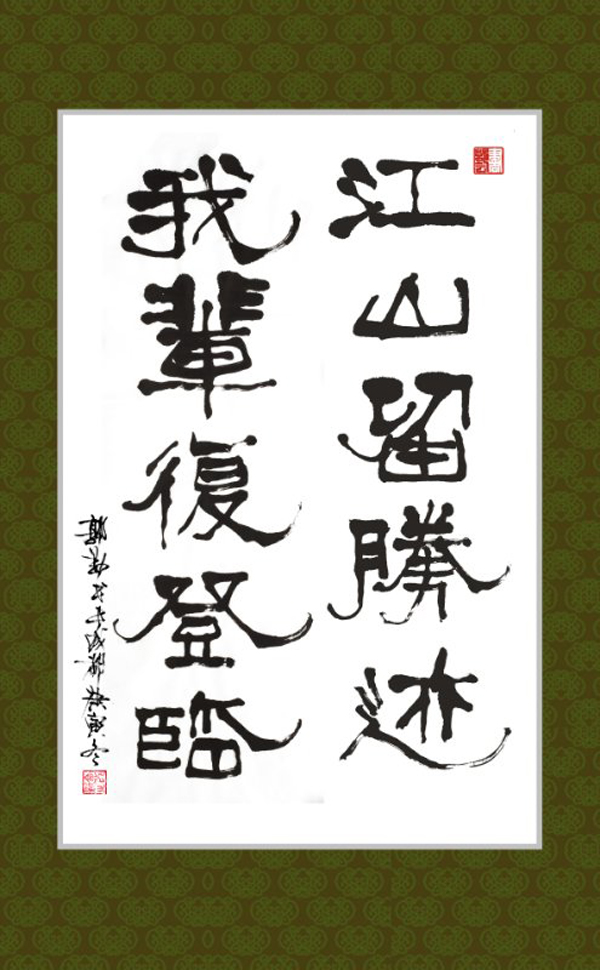 江山留勝迹
我輩復登臨